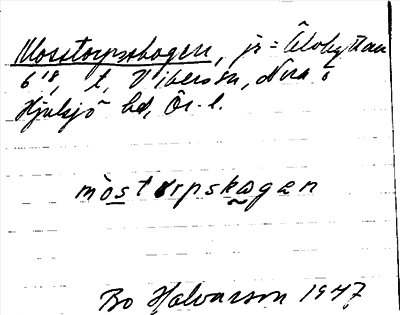 Mosstorpskogen, jr = Älvhyttan
6 1/8, t, Vibersön, Nora o
Hjulsjö bd, Ör. l.
mòstorpskogen
Bo Halvarson 1947